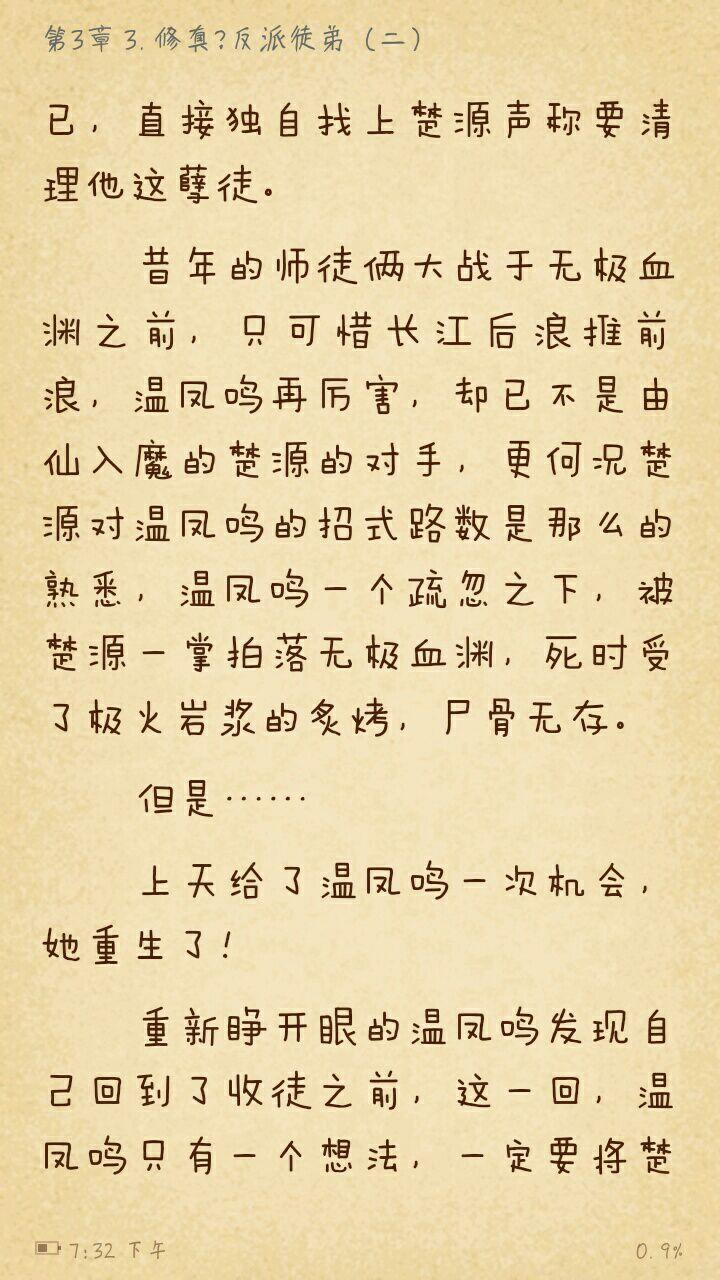 第3章 3. 修真?反派徒弟（二）
已，直接独自找上楚源声称要清
理他这孽徒。
昔年的师徒俩大战于无极血
渊之前，只可惜长江后浪推前
浪，温凤鸣再厉害，却已不是由
仙入魔的楚源的对手，更何况楚
源对温凤鸣的招式路数是那么的
熟悉，温凤鸣一个疏忽之下，被
楚源一掌拍落无极血渊，死时受
了极火岩浆的炙烤，尸骨无存。
但是……
上天给了温凤鸣一次机会，
她重生了！
重新睁开眼的温凤鸣发现自
己回到了收徒之前，这一回，温
凤鸣只有一个想法，一定要将楚
7:32 下午
0.9%